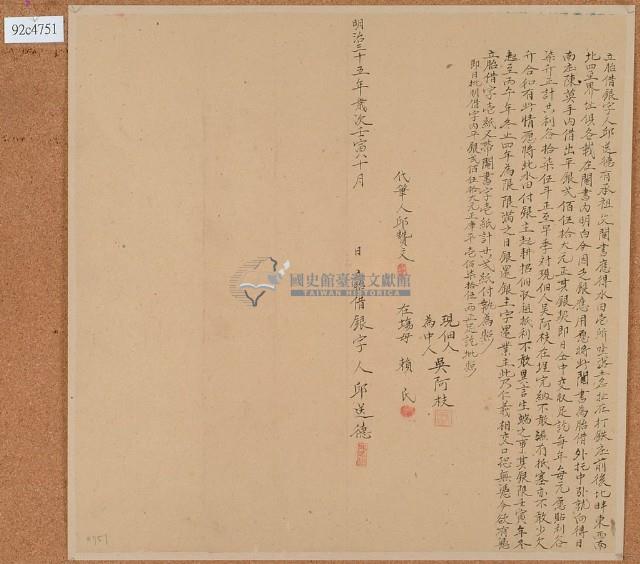 92c4751
立胎借銀字人邱送德有承祖父鬮書應得水田壱所坐落土名址在打鐵庄前後北畔東西南
北四至界址俱各載在鬮書內明白今因乏銀應用愿將此鬮書為胎借外托中引就向得日
南庄陳英手內借出平銀弍佰伍拾大元正其銀契即日仝中交收足訖每年每元愿貼利谷
柒升正計共利谷拾柒伍斗正至早季對現佃人吳阿枝在埕完納不敢濕冇抵塞亦不敢少欠
升合如有此情愿將此水田付銀主起耕招佃收租抵利不敢異言生端之事其銀限壬寅年冬
起至丙午年冬止四年為限限滿之日銀還銀主字還業主此乃仁義相交口恐無憑今欲有憑
立胎借字壱紙又帶鬮書字壱紙計共弍紙付執為照
即日批明借字內平銀弍佰伍拾大元正庫平壱佰柒拾伍両正足訖批照
現佃人
為中人 吳阿枝
代筆人邱贊文
在塲母 賴民
日立胎借銀字人邱送德
明治三十五年歲次壬寅八十月
國史館臺灣文獻館
TAIWAN HISTORICA
4751